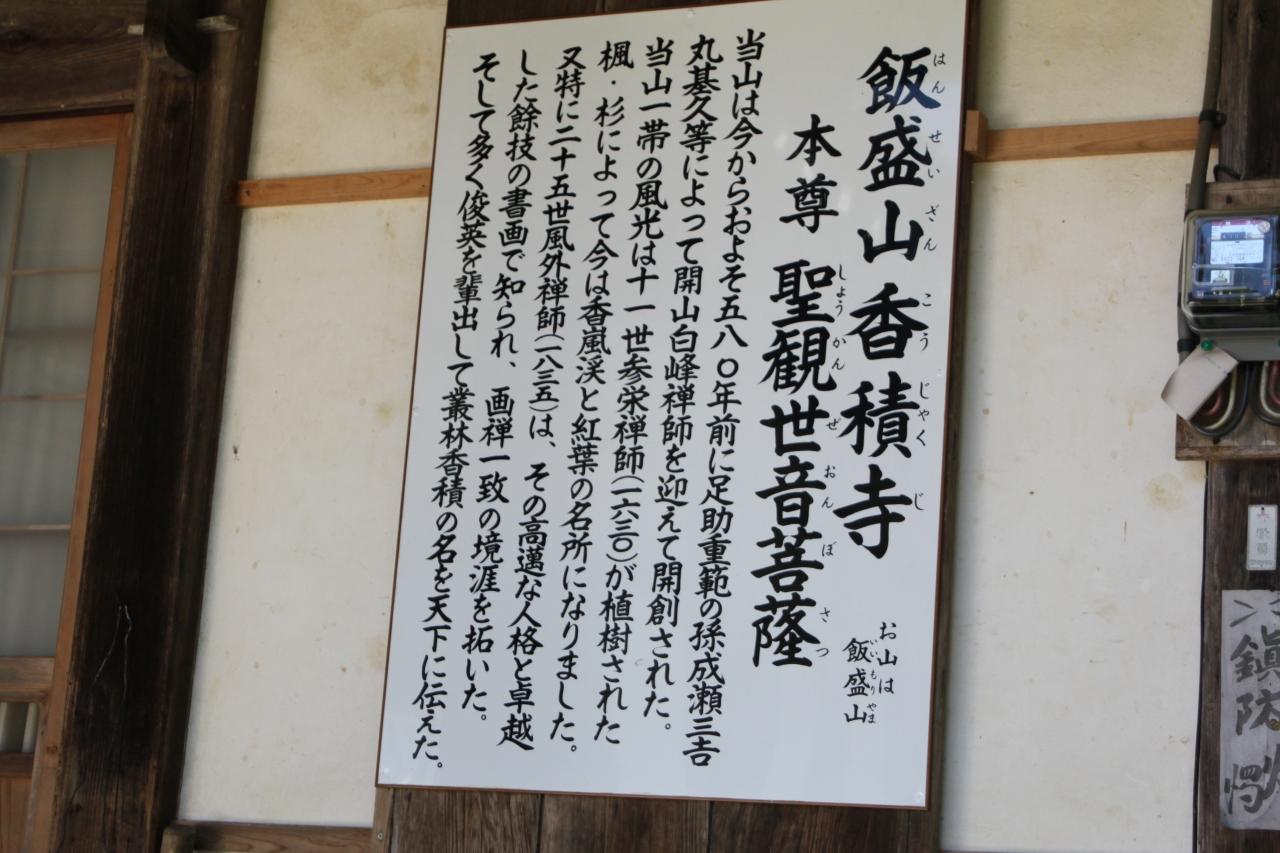 飯盛山香積寺
はんせいざんこうじゃくじ
お山は
飯盛山
いいもりやま
本尊 聖観世音菩薩
しょうかんぜおんぼさつ
当山は今からおよそ五八〇年前に足助重範の孫成瀬三吉
丸基久等によって開山白峰禅師を迎えて開創された。
当山一帯の風光は十一世参栄禅師(一六三〇)が植樹された
楓・杉によって今は香嵐渓と紅葉の名所になりました。
又特に二十五世風外禅師(一八三五)は、その高邁な人格と卓越
した餘技の書画で知られ、画禅一致の境涯を拓いた。
そして多く俊英を輩出して叢林香積の名を天下に伝えた。
鎮防